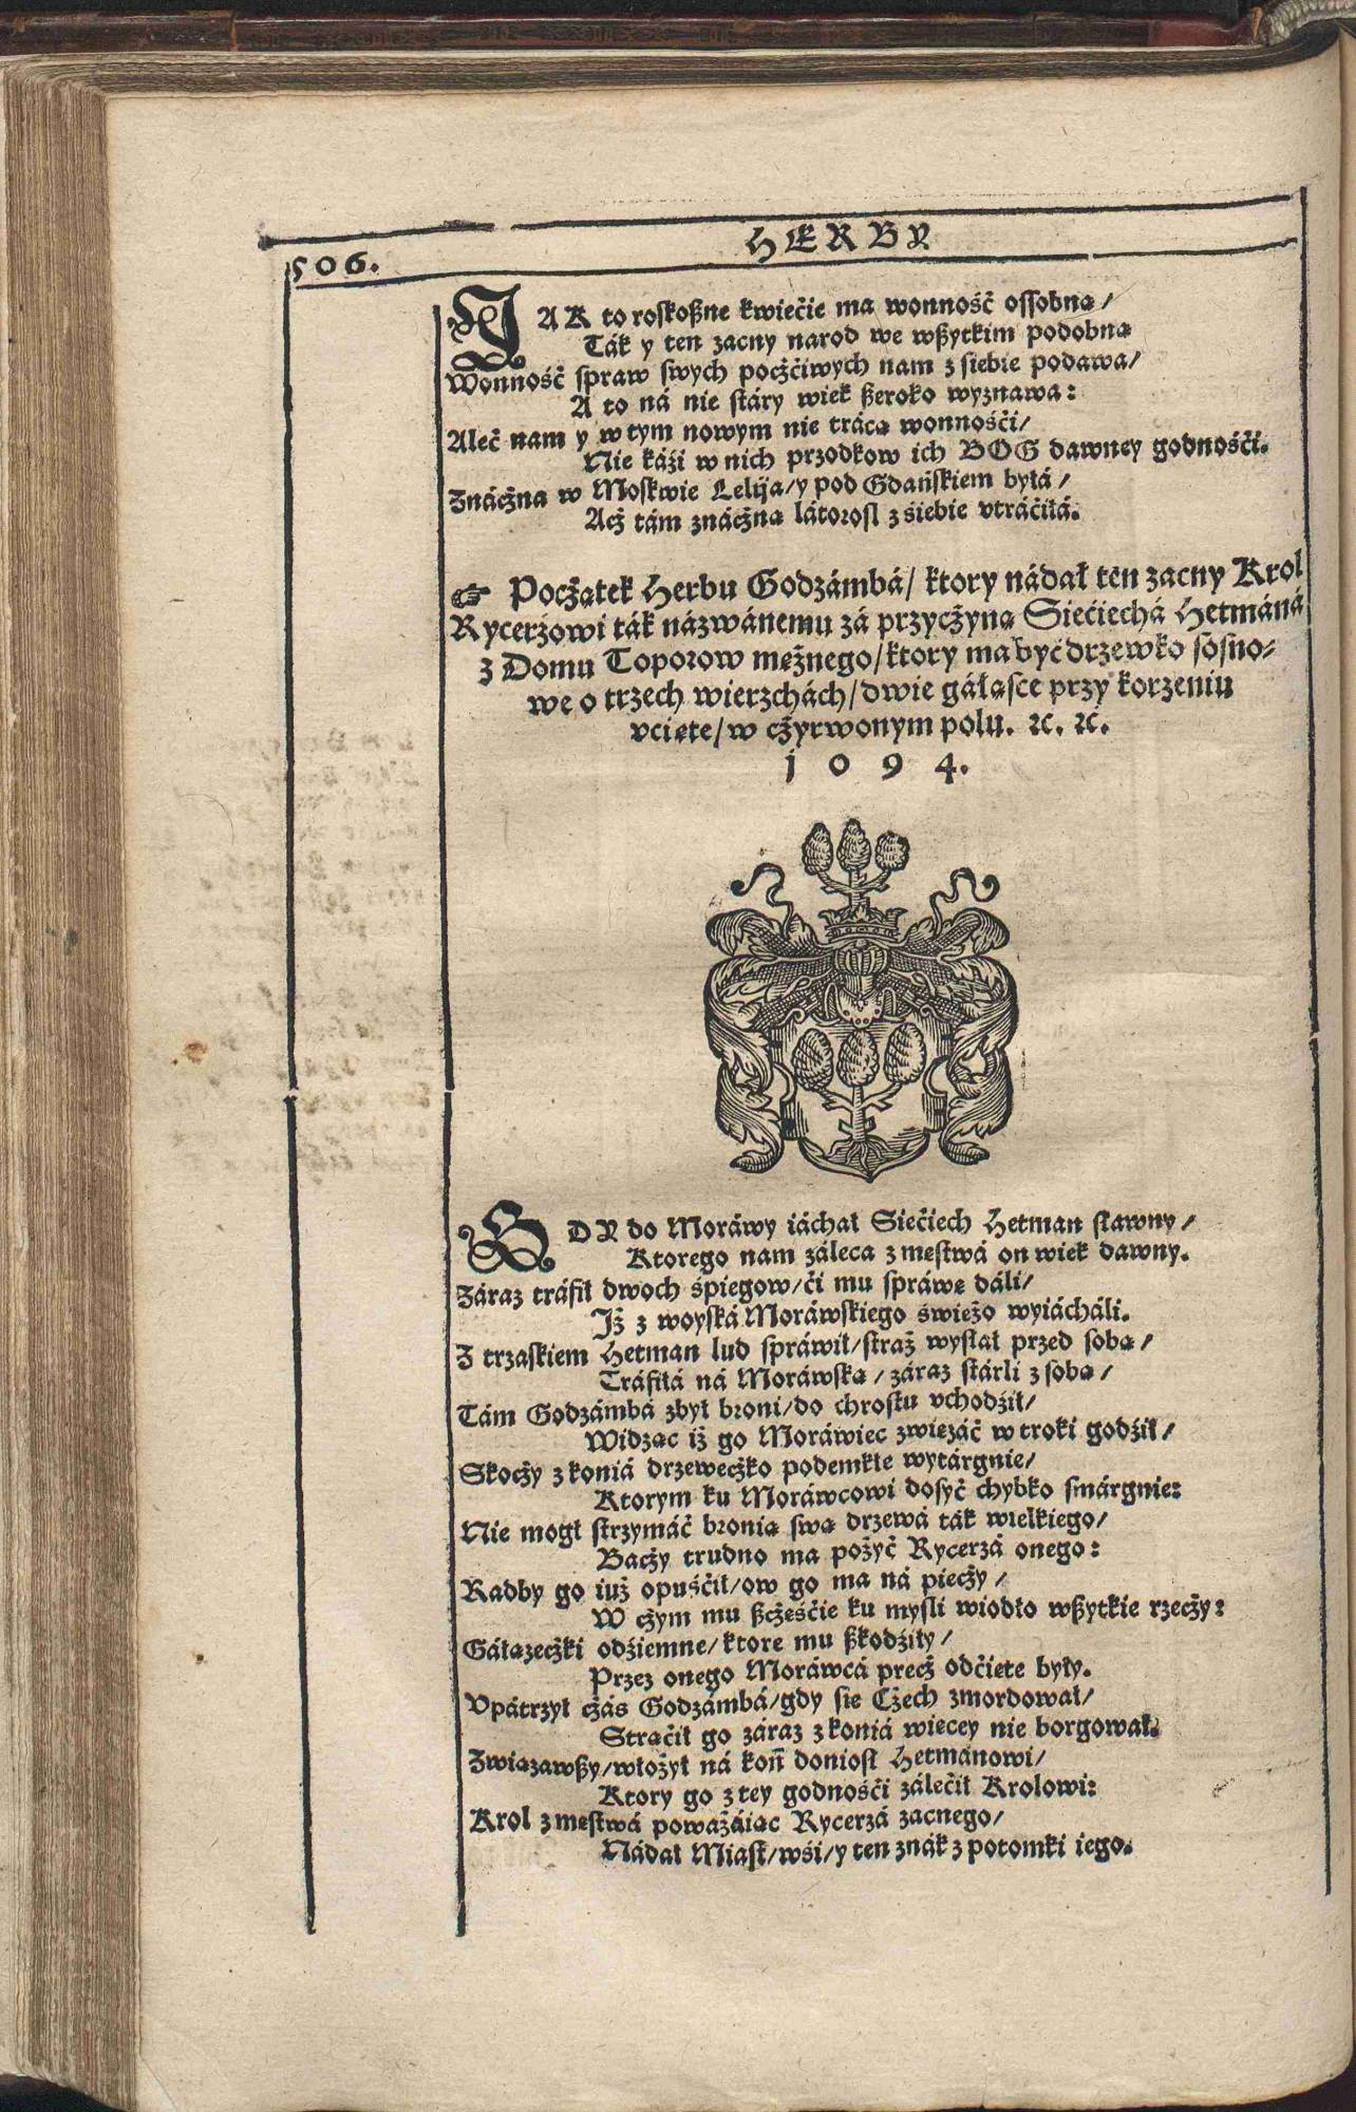 506.
HERBY
JAK to roskoßne kwiećie ma wonność ossobną/
Ták y ten zacny narod we wßytkim podobną
Wonność spraw swych poczćiwych nam z siebie podawa/
A to ná nie stáry wiek ßeroko wyznawa:
Aleć nam y w tym nowym nie trácą wonnośći/
Nie káźi w nich przodkow ich BOG dawney godnośći.
Znáczna w Moskwie Lelija/ y pod Gdańskiem byłá/
Acż tám znáczną látorosl z siebie vtráćiłá.
☞ Początek Herbu Godzámbá/ ktory nádał ten zacny Krol
Rycerzowi ták názwánemu zá przyczyną Siećiechá Hetmáná
z Domu Toporow mężnego/ ktory ma być drzewko sosno-
we o trzech wierzchách/ dwie gáłąsce przy korzeniu
vcięte/ w czyrwonym polu. ꝛc. ꝛc.
1094.
GDY do Moráwy iáchał Siećiech Hetman sławny/
Ktorego nam záleca z męstwá on wiek dawny.
Záraz tráfił dwoch śpiegow/ ći mu spráwę dáli/
Iż z woyská Moráwskiego świeżo wyiácháli.
Z trzaskiem Hetman lud spráwił/ straż wysłał przed sobą/
Tráfiłá ná Moráwską/ záraz stárli z sobą/
Tám Godzámbá zbył broni/ do chrostu vchodźił/
Widząc iż go Moráwiec zwięzáć w troki godźił/
Skoczy z koniá drzeweczko podemkłe wytárgnie/
Ktorym ku Moráwcowi dosyć chybko smárgnie:
Nie mogł strzymáć bronią swą drzewá ták wielkiego/
Baczy trudno ma pożyć Rycerzá onego:
Radby go iuż opuśćił/ ow go ma ná pieczy/
W czym mu ßczęśćie ku myśli wiodło wßytkie rzeczy:
Gáłązeczki odźiemne/ ktore mu ßkodźiły/
Przez onego Moráwcá precz odćięte były.
Vpátrzył czás Godzámbá/ gdy się Czech zmordował/
Strąćił go záraz z koniá więcey nie borgował.
Związawßy/ włożył ná koń doniosł Hetmánowi/
Ktory go z tey godnośći zálećił Krolowi:
Krol z męstwá poważáiąc Rycerzá zacnego/
Nádał Miast/ wśi/ y ten znák z potomki iego.